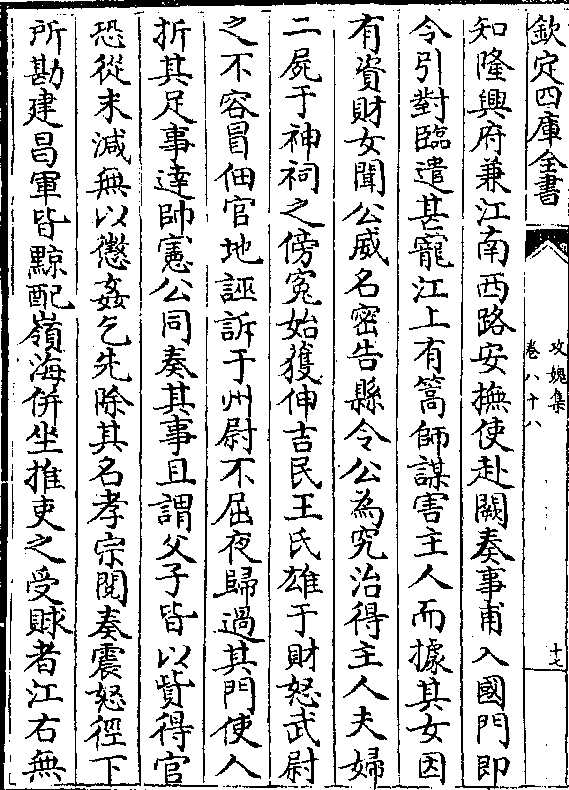 欽定四庫全書
攻媿集
卷八十八
十七
知隆興府兼江南西路安撫使赴闕奏事甫入國門即
令引對臨遣甚寵江上有篙師謀害主人而據其女因
有資財女聞公威名密告縣令公為究治得主人夫婦
二屍于神祠之傍寃始獲伸吉民王氏雄于財怒武尉
之不容冒佃官地誣訴于州尉不屈夜歸過其門使人
折其足事達帥憲公同奏其事且謂父子皆以貲得官
恐從末減無以懲姦乞先除其名孝宗閱奏震怒徑下
所勘建昌軍皆黥配嶺海併坐推吏之受賕者江右無